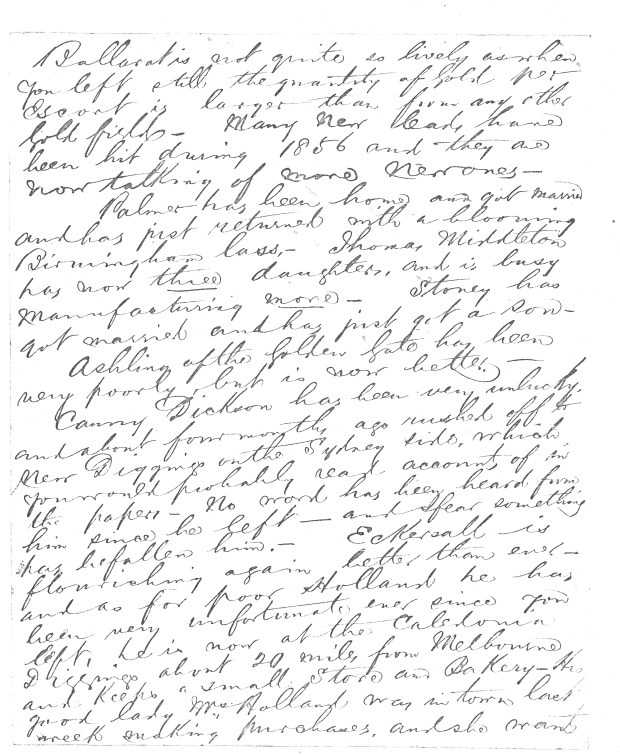 Ballarat is not quite so lively as when
you left still the quantity of Gold per
Escort is larger than from any other
Gold field - Many New leads have
been hit during 1856 and they are
now talking of more New ones -
Palmer has been home and got married
and has just returned with a blooming
Birmingham lass, - Thomas Middleton
has now three daughters, and is busy
manufacturing more - Stoney has
got married and has just got a son -
Ashling of the Golden Gate has been
very poorly, but is now better. -
Canny Dickson has been very unlucky,
and about four months ago rushed off to
New Diggings on the Sydney side, which
you would probably read accounts of in
the papers - No word has been heard from
him since he left - and I fear something
has befallen him. - Eckersall is
flourishing again better than ever -
and as for poor Holland he has
been very unfortunate ever since you
left, he is now at the Caledonia
Diggings about 20 miles from Melbourne
and keeps a small Store and Bakery - His
good lady Mrs Holland was in town last
week making purchases, and she went